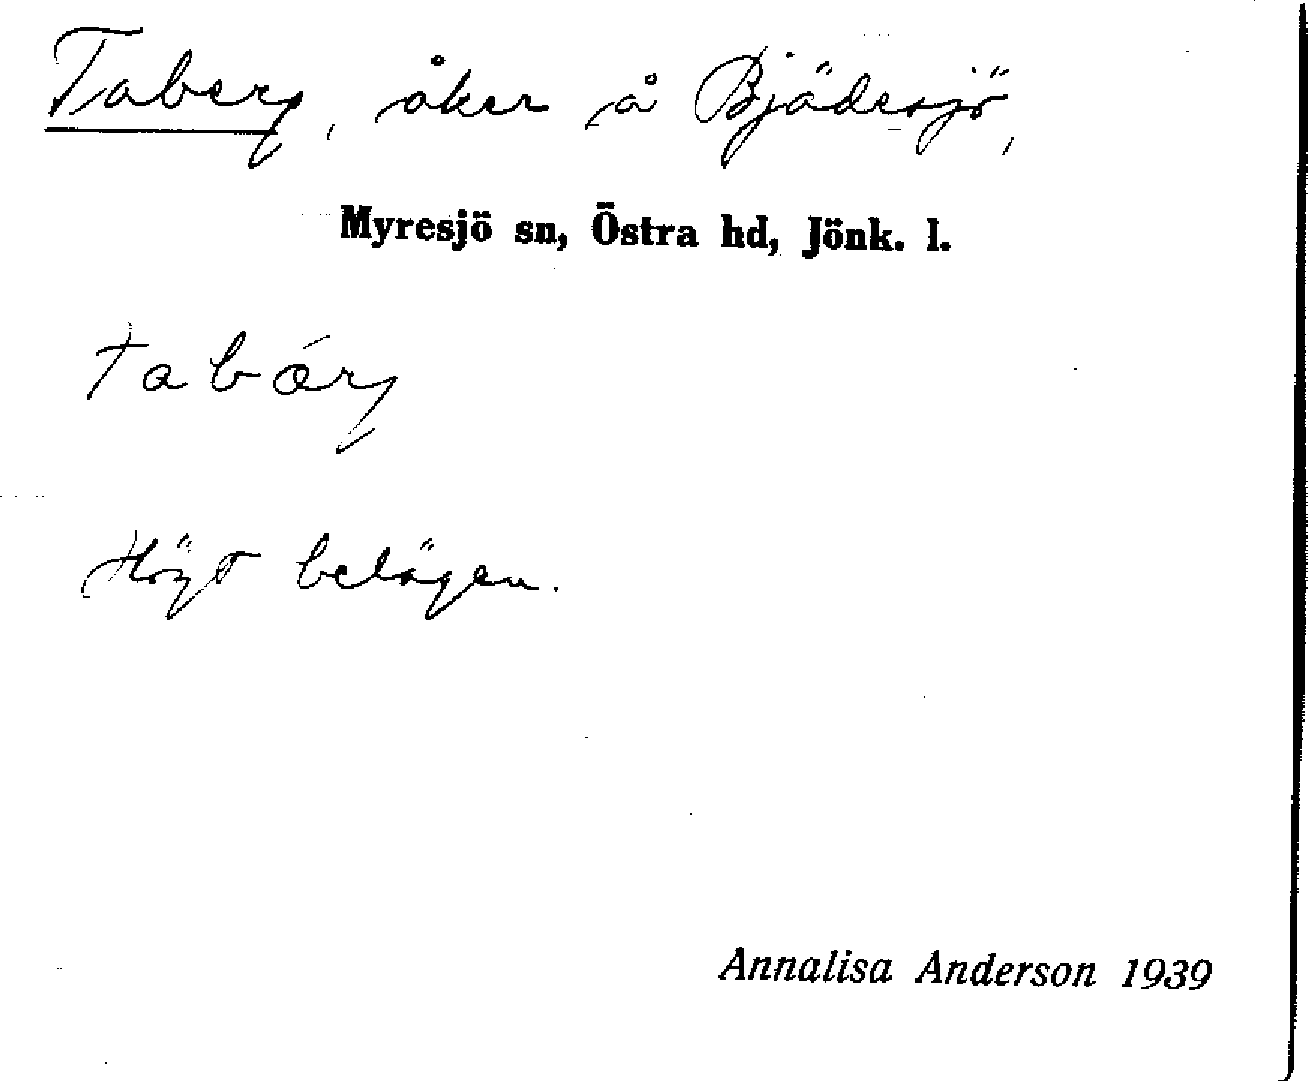 Taberg, åker å Bjädesjö,
Myresjö sn, Östra hd, Jönk. l.
tabǽrj
Högt belägen.
Annalisa Anderson 1939